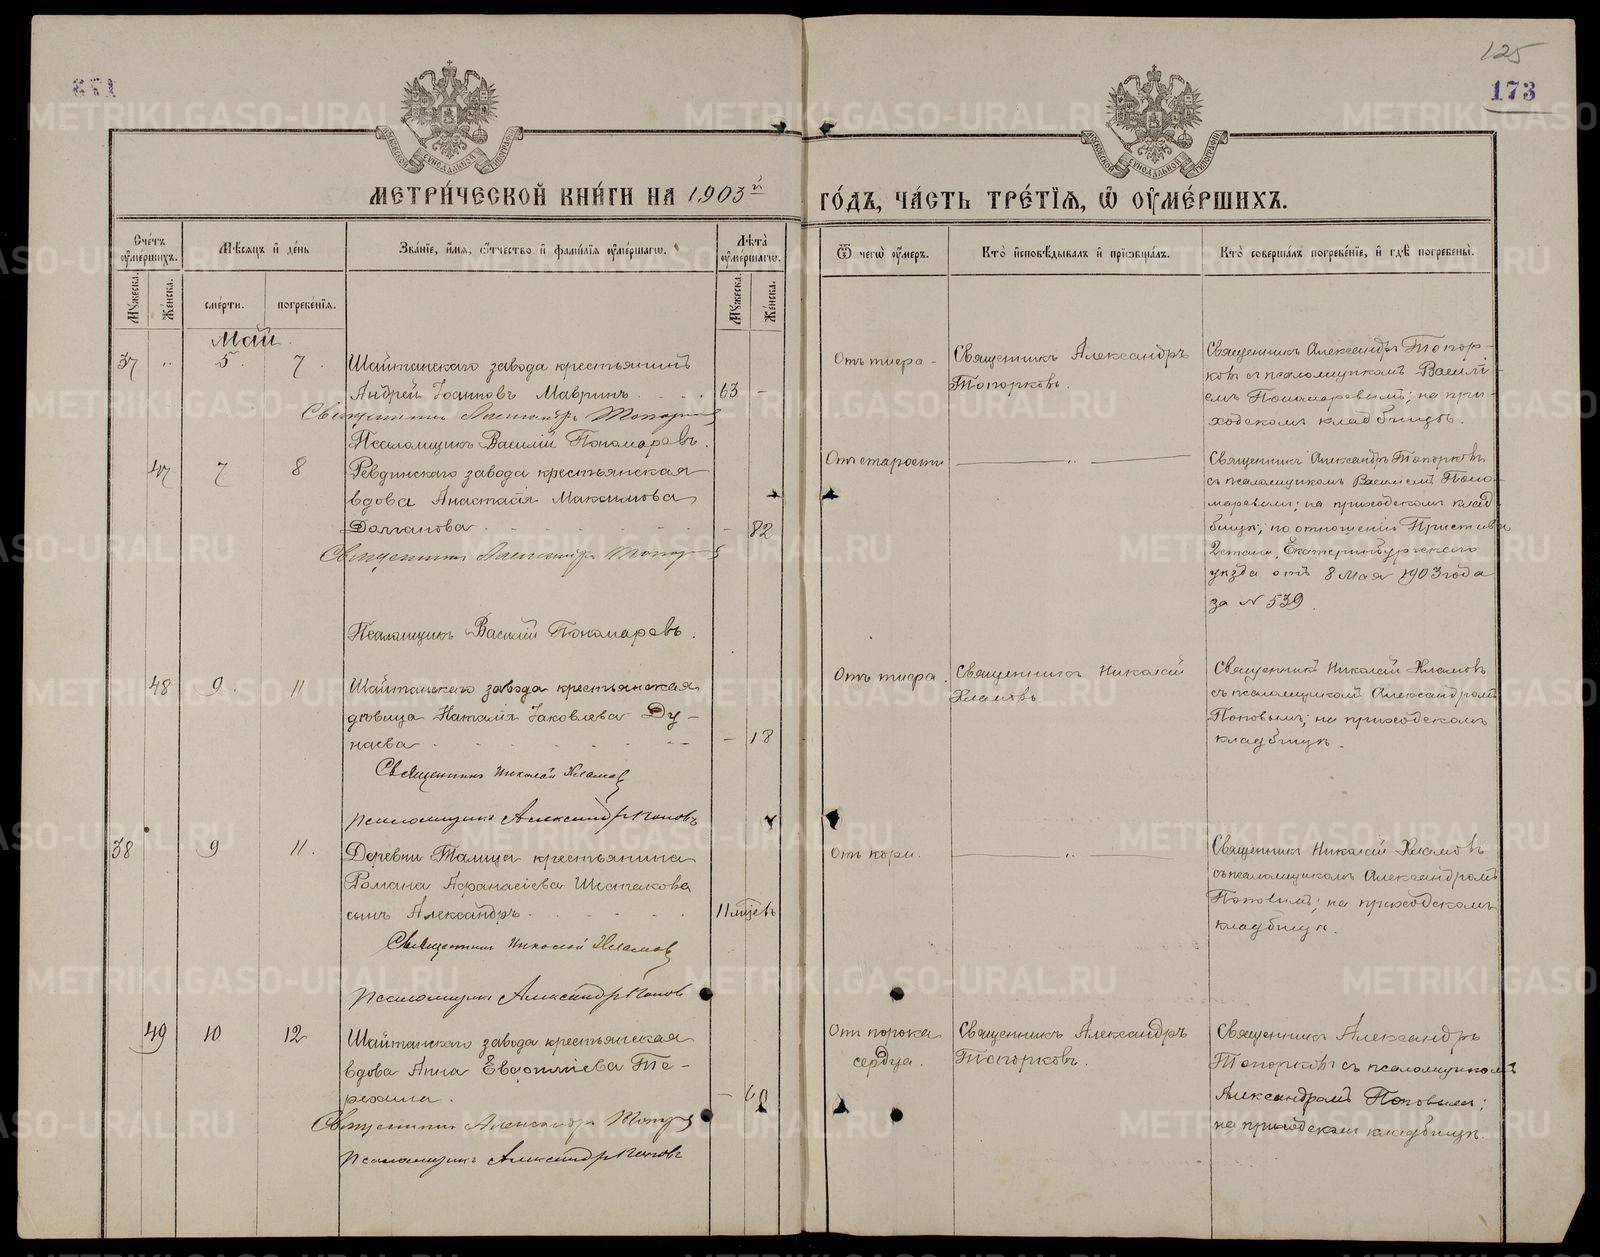 125
173
МЕТРИ́ЧЕСКОЙ КНИ́ГИ НА 1903й ГО́ДЪ, ЧА́СТЬ ТРЕ́ТІѦ, Ѡ҆ ОУ҆МЕ́РШИХЪ.
Сче́тъ оу҆ме́ршихъ.
Мѣ́сѧцъ и҆ де́нь
Зва́нїе, и҆́мѧ, ѻ҆́тчество и҆ фами́лїѧ оу҆ме́ршагѡ.
Лѣ́та оу҆ме́ршагѡ.
Ѿ чегѡ̀ оу҆́меръ.
Кто̀ и҆сповѣ́дывалъ и҆ прїѡбща́лъ.
Кто̀ соверша́лъ погребе́нїе, и҆ гдѣ̀ погребены̀.
Мꙋ́жеска.
Же́нска.
сме́рти.
погребе́нїѧ.
Мꙋ́жеска.
Же́нска.
Май.
37 " 5. 7.
Шайтанскаго завода крестьянинъ
Андрей Іоанновъ Мавринъ 63 -
Священникъ Александръ Топорков
Псаломщикъ Василій Пономаревъ.
Отъ тифа -
Священникъ Александръ
Топорковъ.
Священникъ Александръ Топор-
ковъ съ псаломщикомъ Васили-
емъ Пономаревымъ; на при-
ходскомъ кладбищѣ.
47 7 8
Ревдинскаго завода крестьянская
вдова Анастасія Максимова
Долганова - 82
Священникъ Александръ Топорков
Псаломщикъ Василій Пономаревъ.
Отъ старости
— " —
Священникъ Александръ Топорковъ
съ псаломщикомъ Василіемъ Поно-
маревымъ; на приходскомъ клад-
бищѣ; по отношенію Пристава
2 стана, Екатеринбургскаго
уѣзда отъ 8 Мая 1903 года
за N 539.
48 9. 11
Шайтанскаго завода крестьянская
дѣвица Наталія Іаковлева Ду-
наева - 18
Священникъ Николай Хламов
псаломщикъ Александръ Поповъ
Отъ тифа.
Священникъ Николай
Хламовъ.
Священникъ Николай Хламовъ
съ псаломщикомъ Александромъ
Поповымъ; на приходскомъ
кладбищѣ.
38 9 11.
Деревни Талица крестьянина
Романа Афанасіева Шестакова
сынъ Александръ 11 мцевъ
Священникъ Николай Хламов
псаломщикъ Александръ Попов
Отъ кори.
— " —
Священникъ Николай Хламовъ
съ псаломщикомъ Александромъ
Поповымъ; на приходскомъ
кладбищѣ.
49 10 12
Шайтанскаго завода крестьянская
вдова Анна Евфиміева Те-
рехина. -
Священникъ Александръ Топорков
Псаломщикъ Александръ Поповъ
Отъ порока
сердца.
Священникъ Александръ
Топорковъ.
Священникъ Александръ
Топорковъ съ псаломщикомъ
Александромъ Поповымъ;
на приходскомъ кладбищѣ.
METRIKI.GASO-URAL.RU